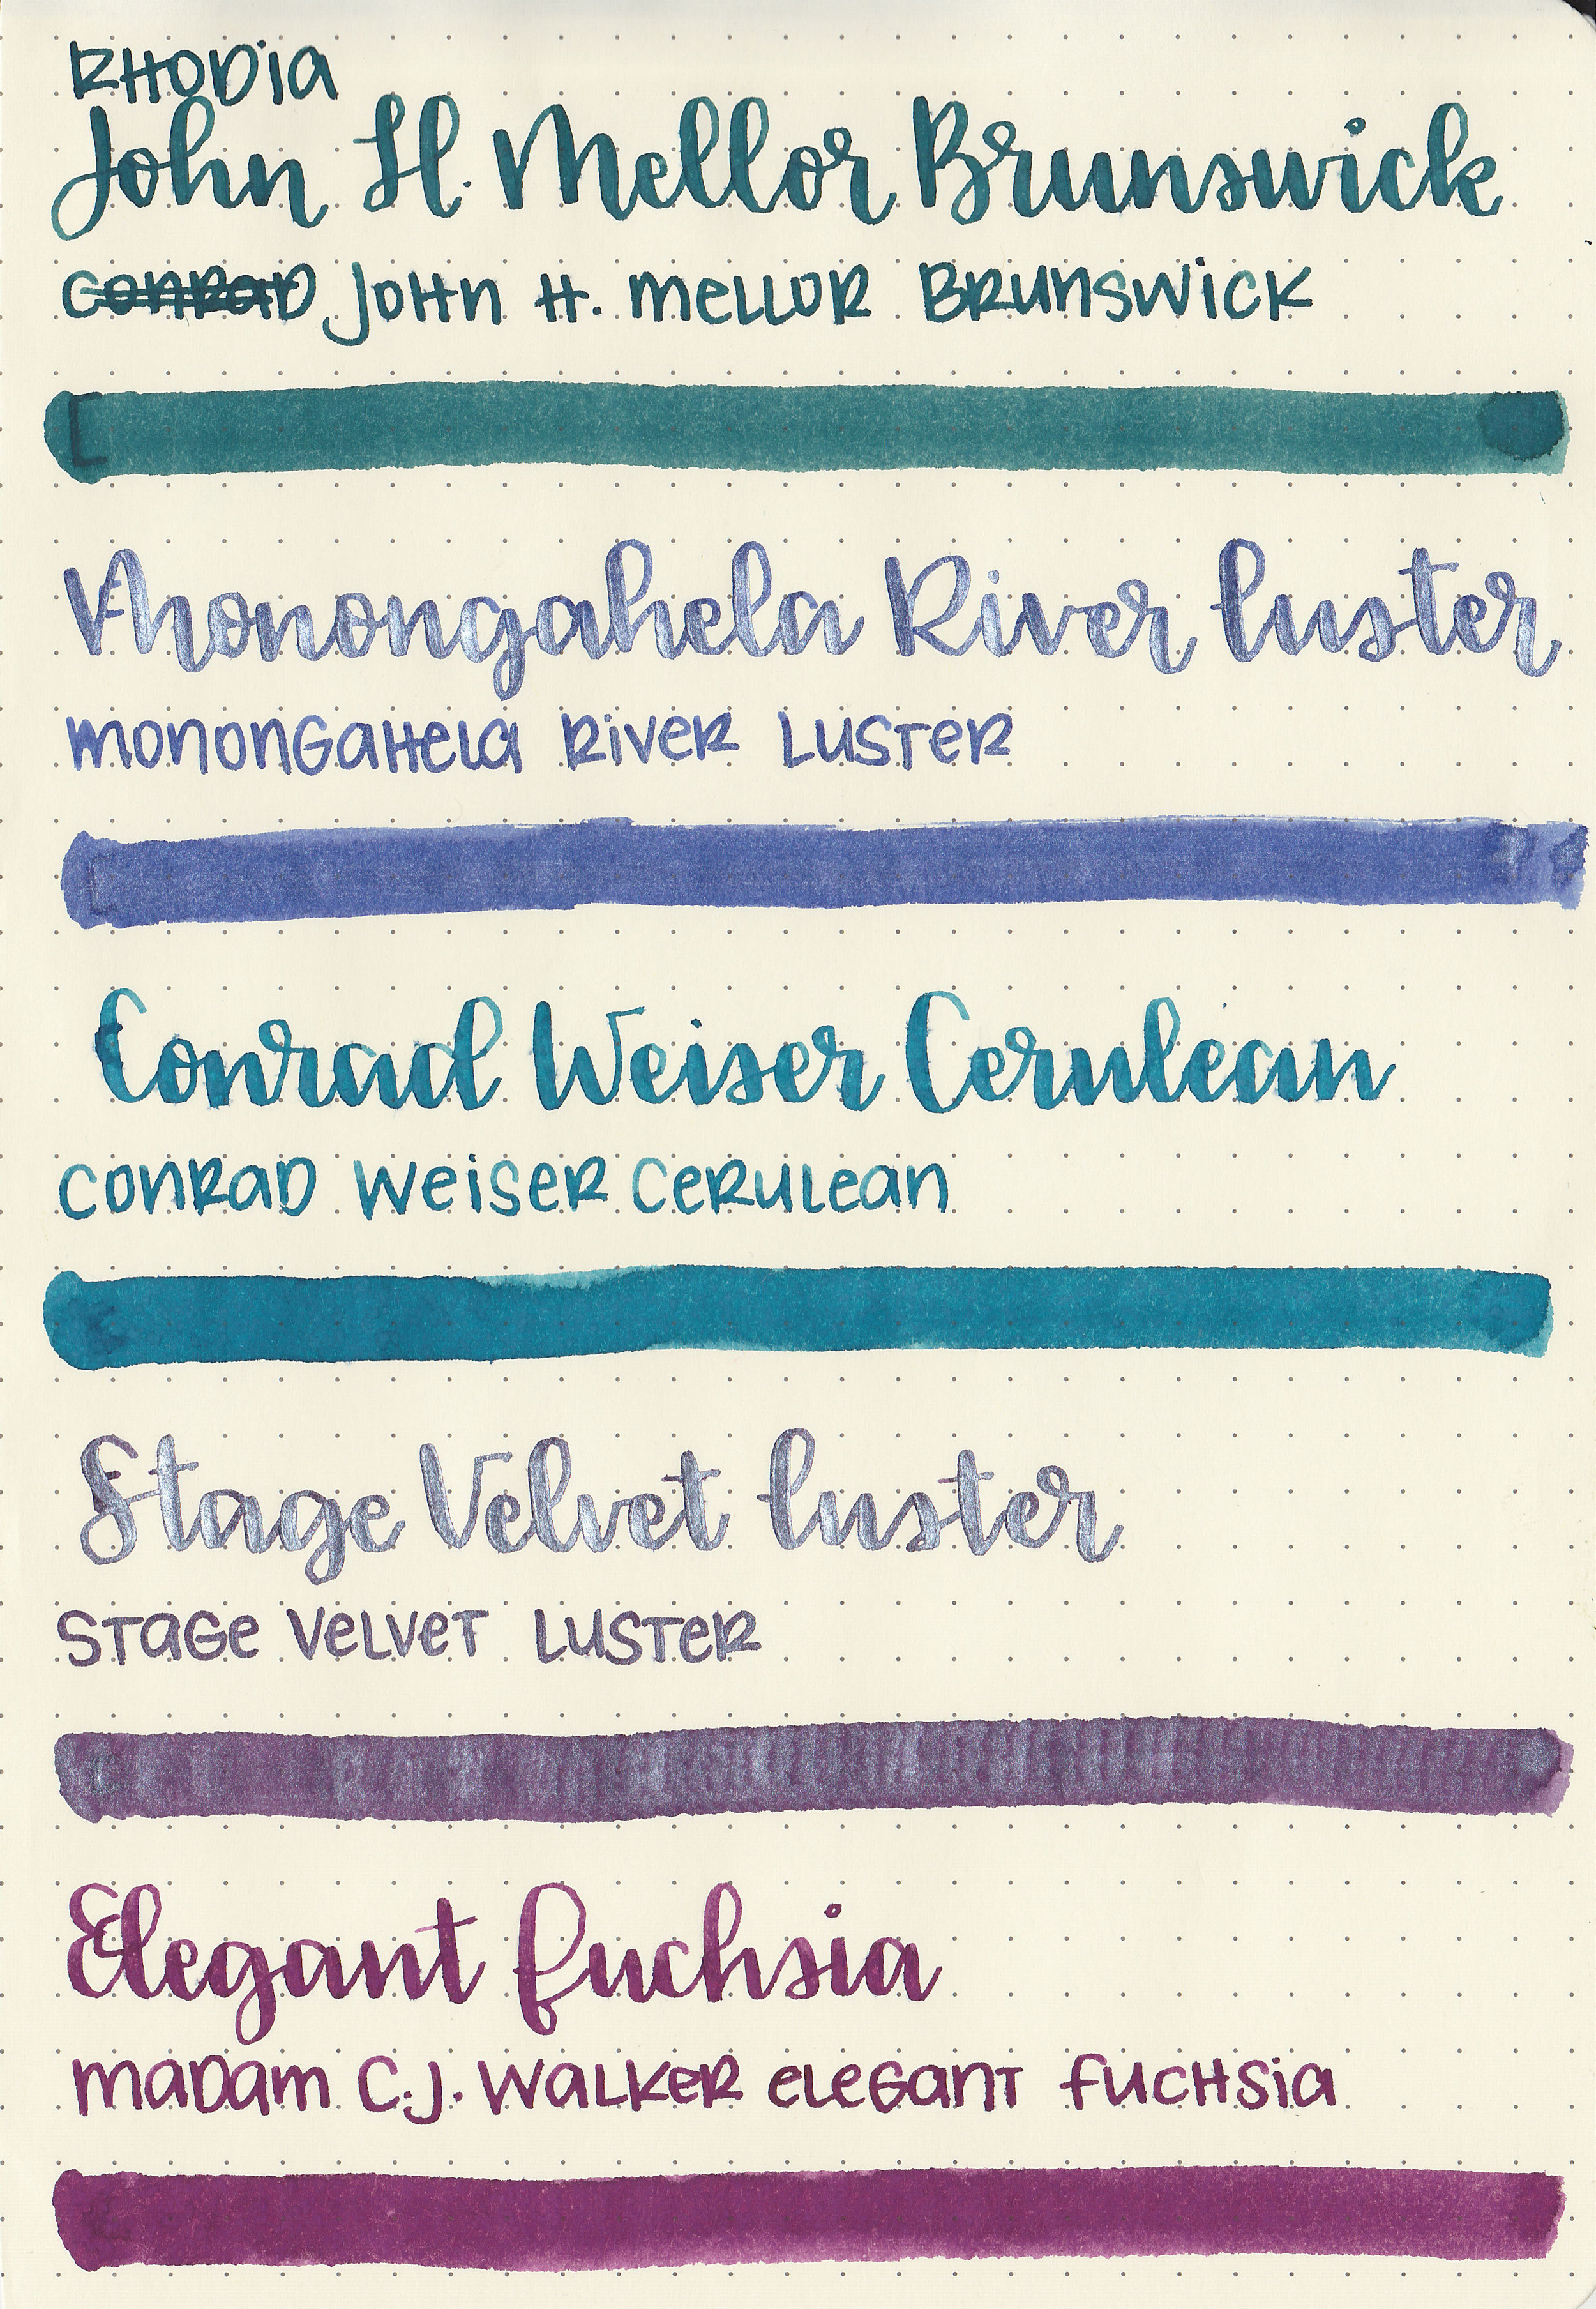 RHODia
John H. Mellor Brunswick
CONRAD JOHN H. MELLOR BRUNSWICK
Monongahela River luster
MONONGAHELA RIVER LUSTER
Conrad Weiser Cerulean
CONRAD WEISER CERULEAN
Stage Velvet luster
STAGE VELVET LUSTER
Elegant fuchsia
MADAM C.J. WALKER ELEGANT FUCHSIA